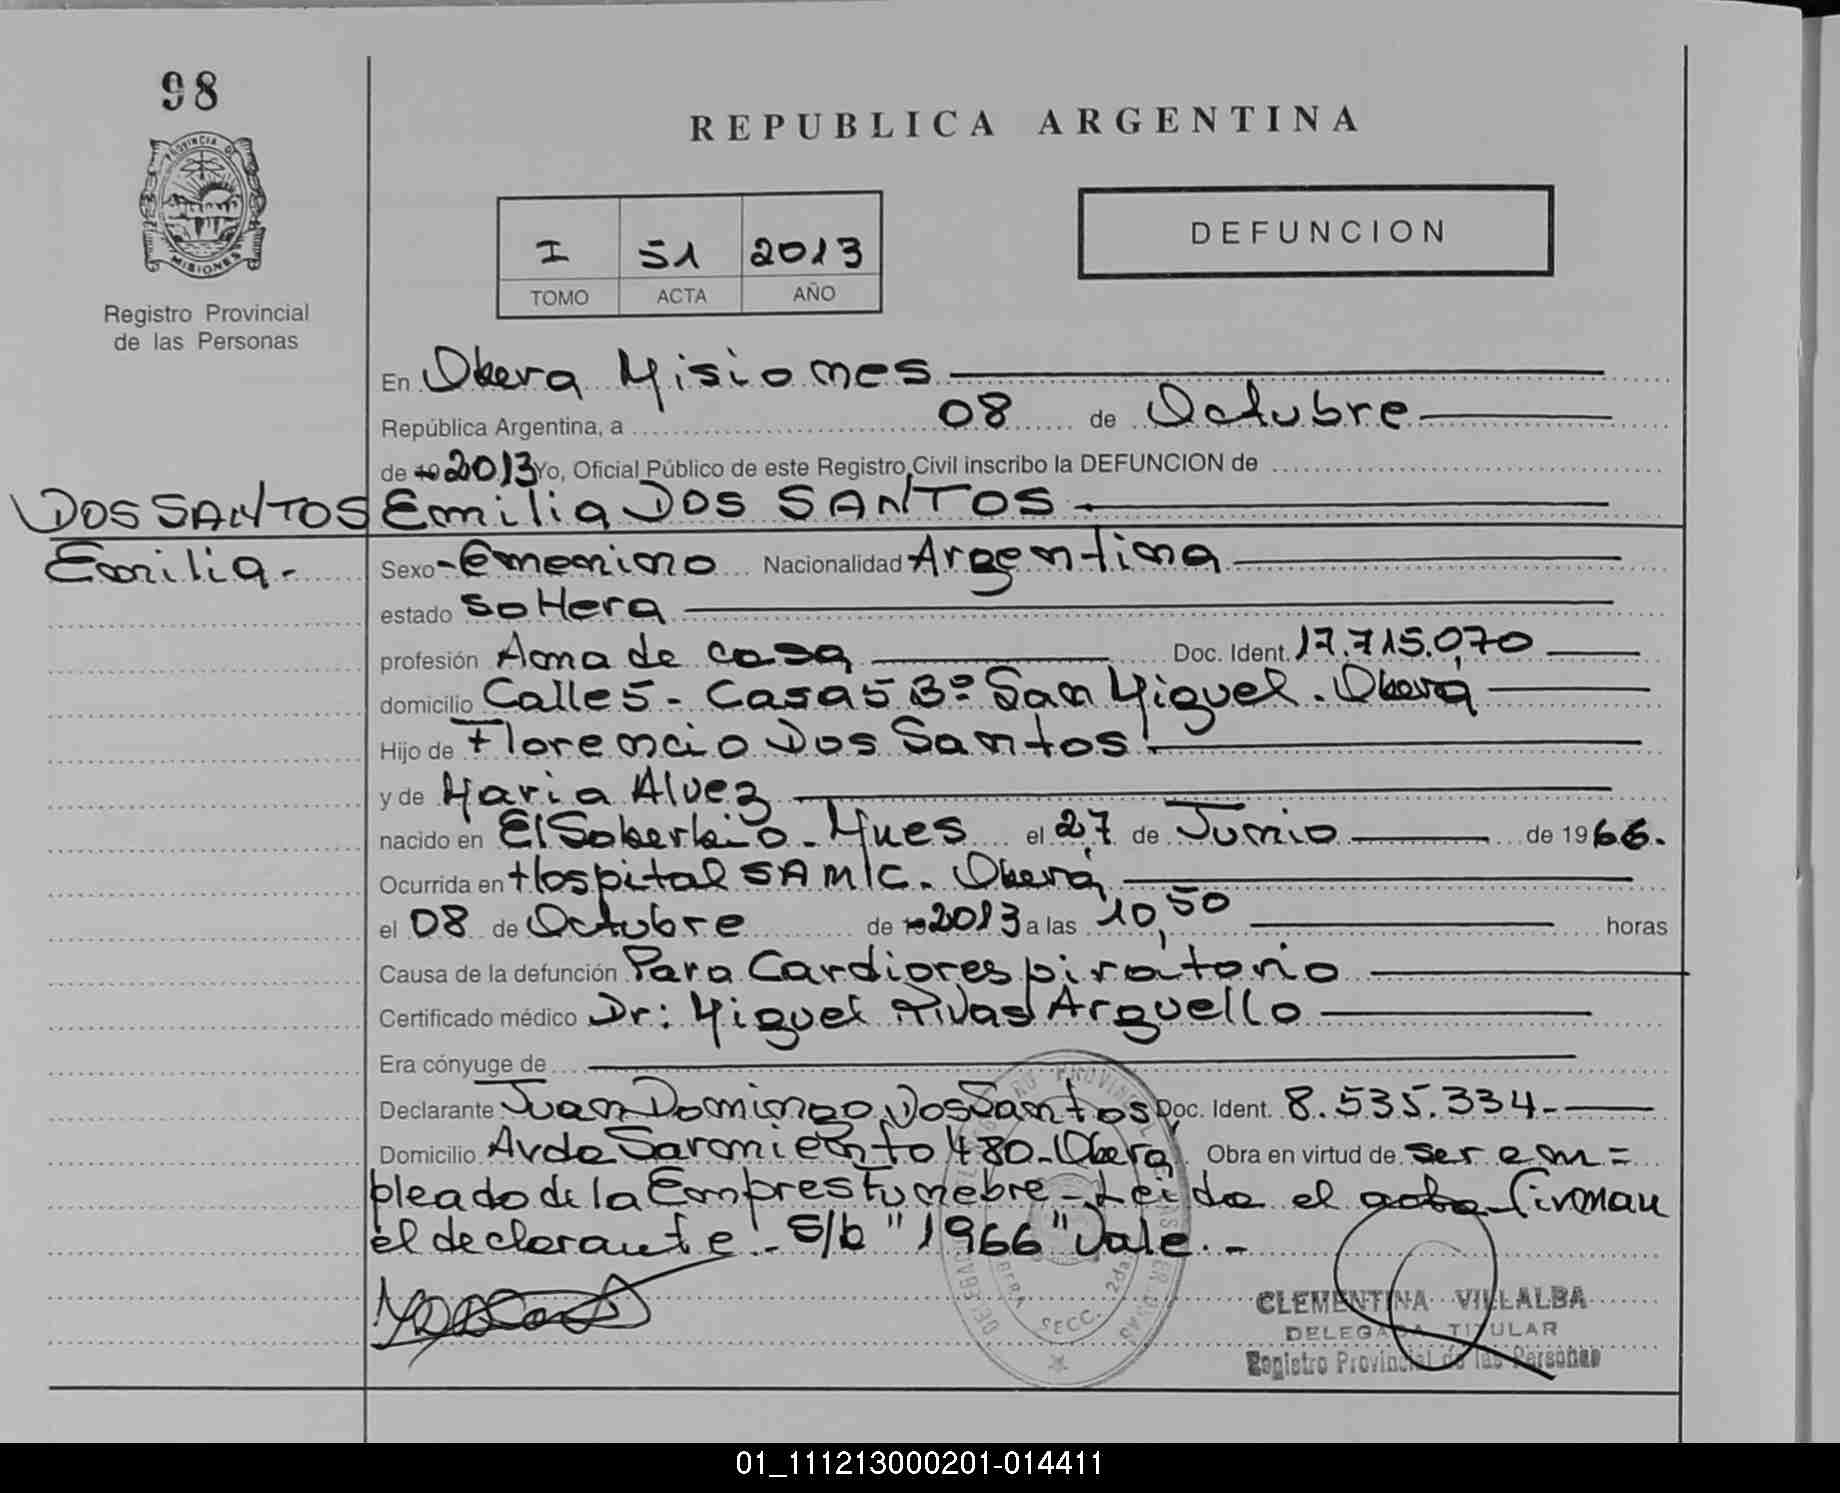 98
PROVINCIA DE
MISIONES
Registro Provincial
de las Personas
REPUBLICA ARGENTINA
I 51 2013
TOMO ACTA AÑO
DEFUNCION
En Obera Misiones
República Argentina, a 08 de Octubre
de 19 2013 Yo, Oficial Público de este Registro Civil inscribo la DEFUNCION de
DOS SANTOS Emilia DOS SANTOS
Emilia.-
Sexo Femenino Nacionalidad Argentina
estado soltera
profesión Ama de casa Doc. Ident. 17.715.070
domicilio Calle 5 - Casa 5 Bº San Miguel. Oberá
Hijo de Florencio Dos Santos
y de Maria Alvez
nacido en El Soberbio - Mnes el 27 de Junio de 1966.
Ocurrida en Hospital SAMIC. Oberá
el 08 de Octubre de 19 2013 a las 10,50 horas
Causa de la defunción Paro Cardiorespiratorio
Certificado médico Dr: Miguel Rivas Arguello
Era cónyuge de
Declarante Juan Domingo Dos Santos Doc. Ident. 8.535.334.-
Domicilio Avda Sarmiento 480 - Obera Obra en virtud de ser em=
pleado de la Empres Funebre - Leida el acta firman
el declarante.- S/b "1966" Vale.-
SECC. 2da.
CLEMENTINA VILLALBA
DELEGADA TITULAR
Registro Provincial de las Personas
01_111213000201-014411